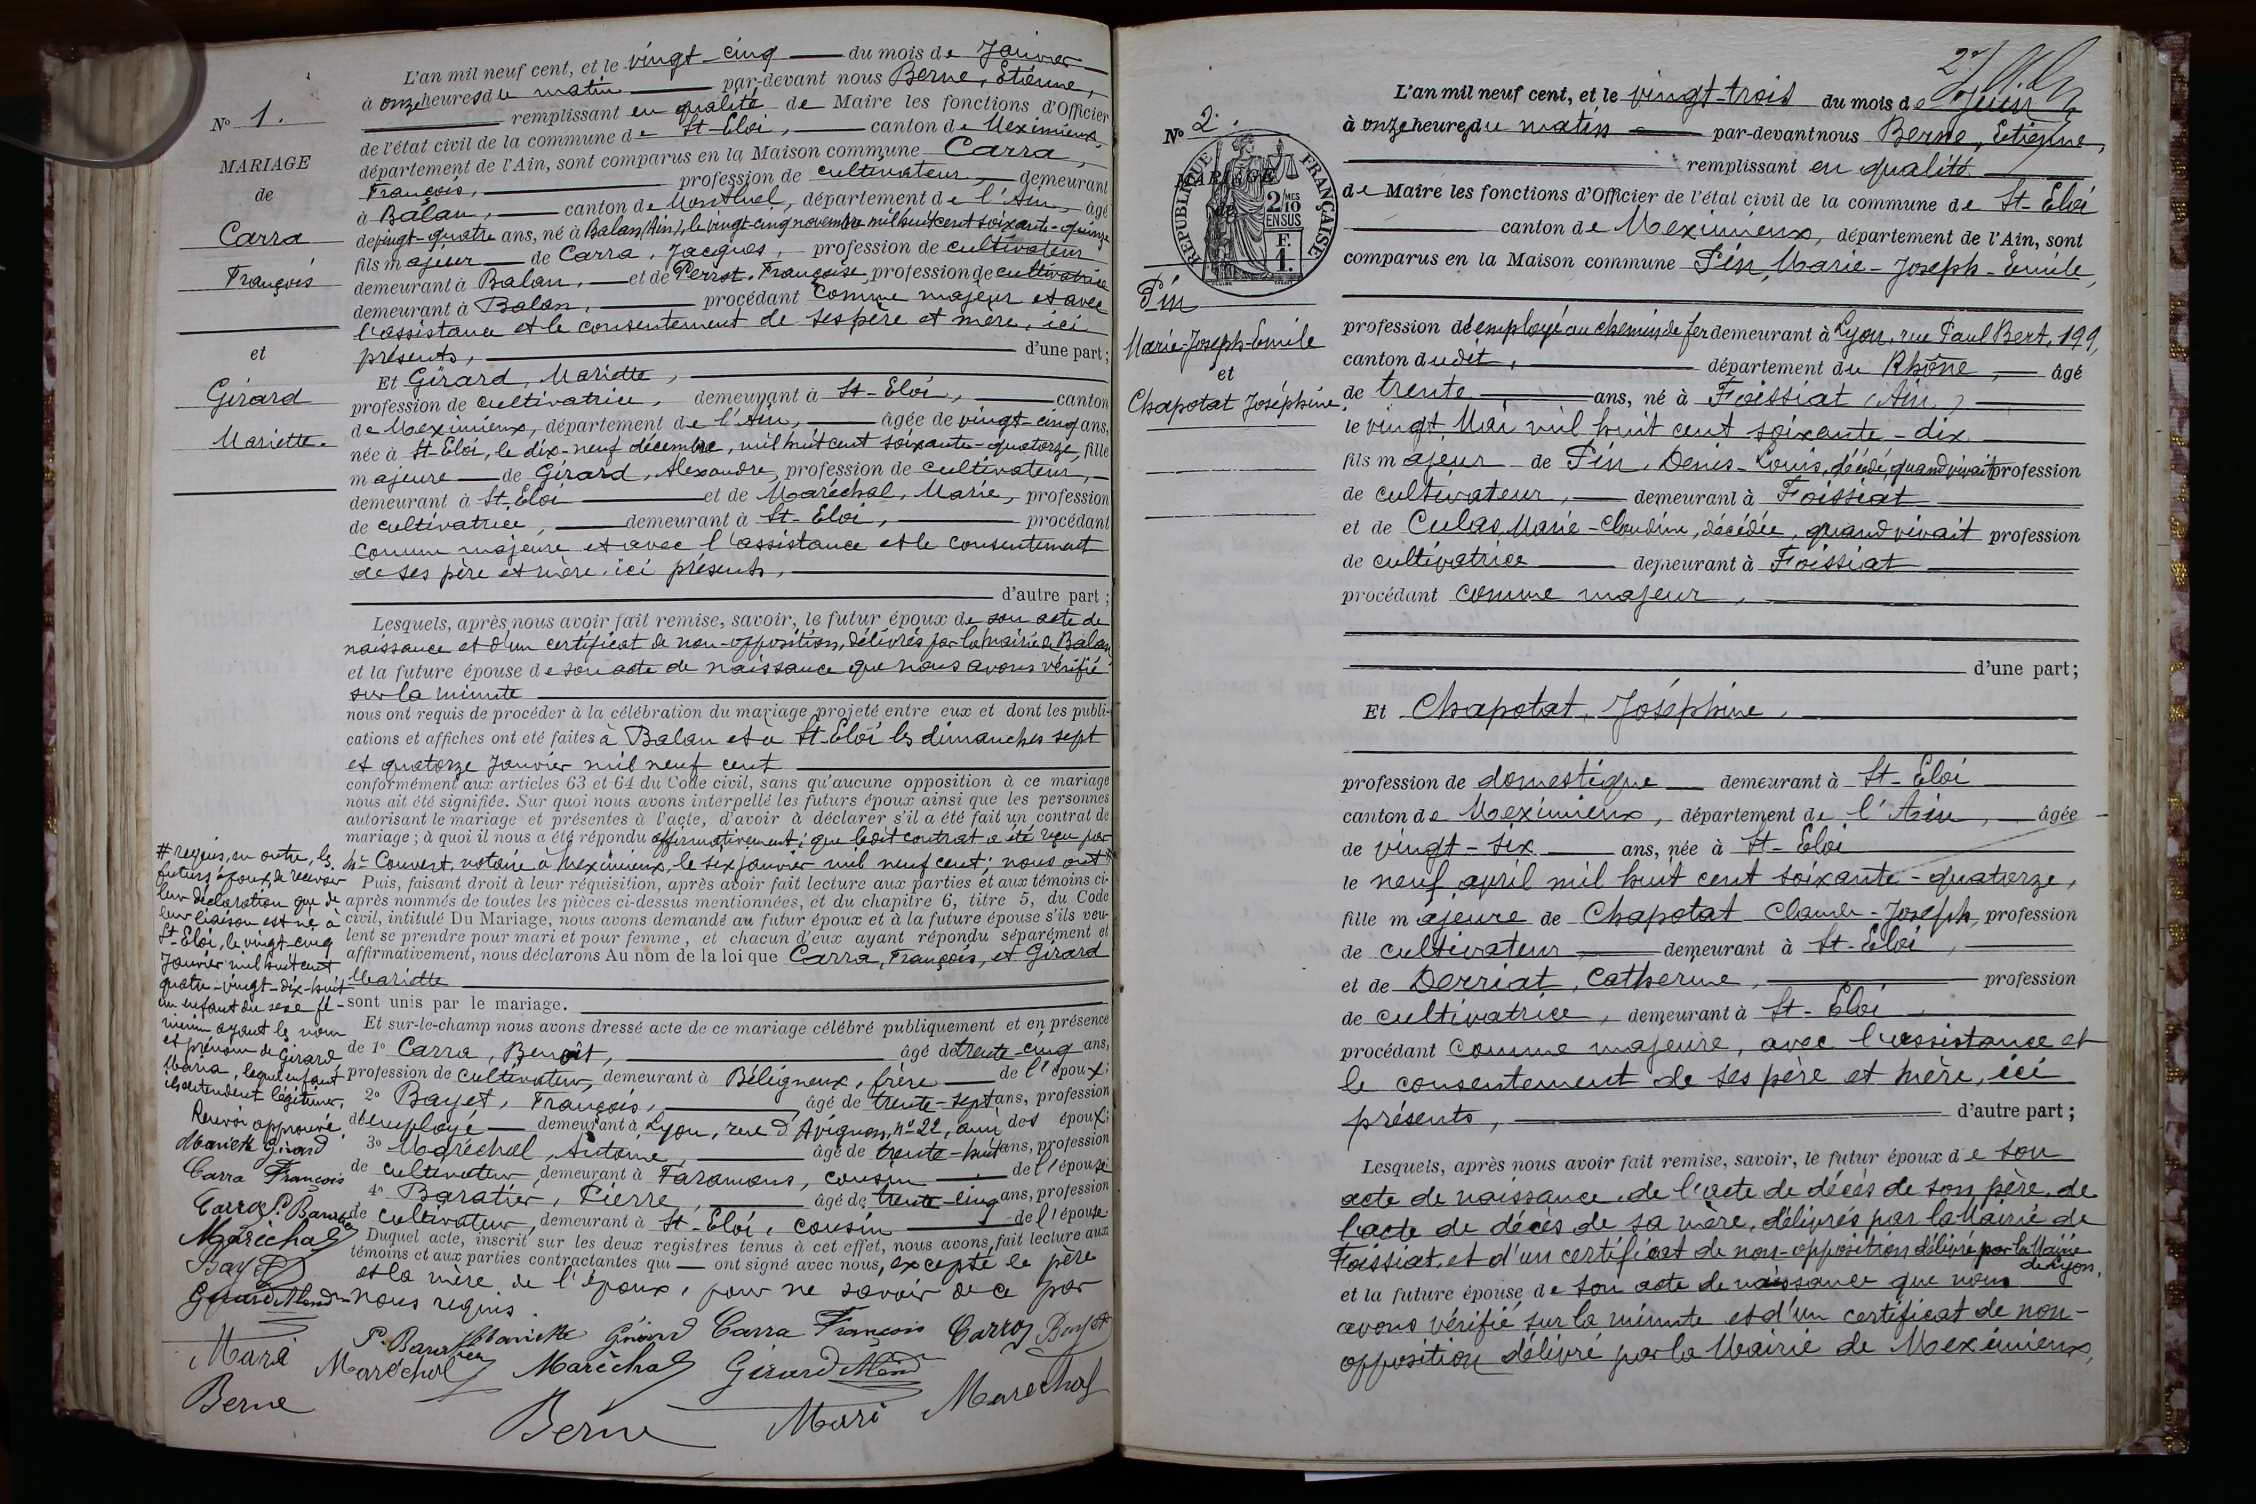 L'an mil neuf cent, et le vingt-cinq du mois de Janvier
à onze heures du matin par-devant nous Berne, Etienne,
remplissant en qualité de Maire les fonctions d'Officier
de l'état civil de la commune de St-Eloi, canton de Meximieux,
département de l'Ain, sont comparus en la Maison commune Carra,
François, profession de cultivateur, demeurant
à Balan, canton de Montluel, département de l'Ain, âgé
de vingt-quatre ans, né à Balan (Ain), le vingt-cinq novembre mil huit cent soixante-quinze
fils majeur de Carra, Jacques, profession de cultivateur
demeurant à Balan, et de Perrot, Françoise, profession de cultivatrice
demeurant à Balan, procédant comme majeur et avec
l'assistance et le consentement de ses père et mère, ici
présents, d'une part;
Et Girard, Mariette,
profession de cultivatrice, demeurant à St-Eloi, canton
de Meximieux, département de l'Ain, âgée de vingt-cinq ans,
née à St-Eloi, le dix-neuf décembre, mil huit cent soixante-quatorze, fille
majeure de Girard, Alexandre, profession de cultivateur,
demeurant à St-Eloi et de Maréchal, Marie, profession
de cultivatrice, demeurant à St-Eloi, procédant
comme majeure et avec l'assistance et le consentement
de ses père et mère, ici présents,
d'autre part;
Lesquels, après nous avoir fait remise, savoir, le futur époux de son acte de
naissance et d'un certificat de non-opposition, délivrés par la Mairie de Balan
et la future épouse de son acte de naissance que nous avons vérifié
sur la minute
nous ont requis de procéder à la célébration du mariage projeté entre eux et dont les publi-
cations et affiches ont été faites à Balan et à St-Eloi les dimanches sept
et quatorze Janvier mil neuf cent
conformément aux articles 63 et 64 du Code civil, sans qu'aucune opposition à ce mariage
nous ait été signifiée. Sur quoi nous avons interpellé les futurs époux ainsi que les personnes
autorisant le mariage et présentes à l'acte, d'avoir à déclarer s'il a été fait un contrat de
mariage; à quoi il nous a été répondu affirmativement; que ledit contrat a été reçu par
Me Convert, notaire à Meximieux, le six janvier mil neuf cent; nous ont #
Puis, faisant droit à leur réquisition, après avoir fait lecture aux parties et aux témoins ci-
après nommés de toutes les pièces ci-dessus mentionnées, et du chapitre 6, titre 5, du Code
civil, intitulé Du Mariage, nous avons demandé au futur époux et à la future épouse s'ils veu-
lent se prendre pour mari et pour femme, et chacun d'eux ayant répondu séparément et
affirmativement, nous déclarons Au nom de la loi que Carra, François, et Girard
Mariette
sont unis par le mariage.
Et sur-le-champ nous avons dressé acte de ce mariage célébré publiquement et en présence
de 1° Carra, Benoît, âgé de trente-cinq ans,
profession de cultivateur, demeurant à Béligneux, frère de l'époux;
2° Bayet, François, âgé de trente-sept ans, profession
d'employé demeurant à Lyon, rue d'Avignon, n° 22, ami des époux;
3° Maréchal, Antoine, âgé de trente-huit ans, profession
de cultivateur demeurant à Faramans, cousin de l'épouse
4° Baratier, Pierre, âgé de trente-cinq ans, profession
de cultivateur, demeurant à St-Eloi, cousin de l'épouse
Duquel acte, inscrit sur les deux registres tenus à cet effet, nous avons fait lecture aux
témoins et aux parties contractantes qui ont signé avec nous, excepté le père
et la mère de l'époux, pour ne savoir de ce par
nous requis.
P. Baratier Mariette Girard Carra François Carra Bayet
Maréchal Maréchal Girard Alexandre
Berne Mari Marechal
N° 1.
MARIAGE
de
Carra
François
et
Girard
Mariette.
# requis, en outre, les
futurs époux, de recevoir
leur déclaration que de
leur liaison est né à
St-Eloi, le vingt-cinq
Janvier mil huit cent
quatre-vingt-dix-huit
un enfant du sexe fé-
minin ayant les nom
et prénom de Girard
Maria, lequel enfant
ils entendent légitimer.
Renvoi approuvé.
Mariette Girard
Carra François
Carra P. Baratier
Maréchal
Bayet
Girard Alexandre
Mari Maréchal
Berne
2e
L'an mil neuf cent, et le vingt-trois du mois de Juin
à onze heures du matin par-devant nous Berne, Etienne,
remplissant en qualité
de Maire les fonctions d'Officier de l'état civil de la commune de St-Eloi
canton de Meximieux, département de l'Ain, sont
comparus en la Maison commune Pin, Marie-Joseph-Emile,
profession d'employé au chemin de fer demeurant à Lyon, rue Paul Bert, 199,
canton dudit, département du Rhône, âgé
de trente ans, né à Foissiat (Ain)
le vingt Mai mil huit cent soixante-dix
fils majeur de Pin, Denis-Louis, décédé, quand vivait profession
de cultivateur, demeurant à Foissiat
et de Culas, Marie-Claudine, décédée, quand vivait profession
de cultivatrice demeurant à Foissiat
procédant comme majeur,
d'une part;
Et Chapotat, Joséphine,
profession de domestique demeurant à St-Eloi
canton de Meximieux, département de l'Ain, âgée
de vingt-six ans, née à St-Eloi
le neuf april mil huit cent soixante-quatorze,
fille majeure de Chapotat Claude-Joseph, profession
de cultivateur demeurant à St-Eloi,
et de Derriat, Catherine, profession
de cultivatrice, demeurant à St-Eloi,
procédant comme majeure, avec l'assistance et
le consentement de ses père et mère, ici
présents, d'autre part;
Lesquels, après nous avoir fait remise, savoir, le futur époux de son
acte de naissance, de l'acte de décès de son père, de
l'acte de décès de sa mère, délivrés par la Mairie de
Foissiat, et d'un certificat de non-opposition délivré par la Mairie
de Lyon,
et la future épouse de son acte de naissance que nous
avons vérifié sur la minute et d'un certificat de non-
opposition délivré par la Mairie de Meximieux,
N° 2.
MARIAGE
de
RÉPUBLIQUE FRANÇAISE
2/10 MES
EN SUS
F.
1.
Pin
Marie-Joseph-Emile
et
Chapotat Joséphine.